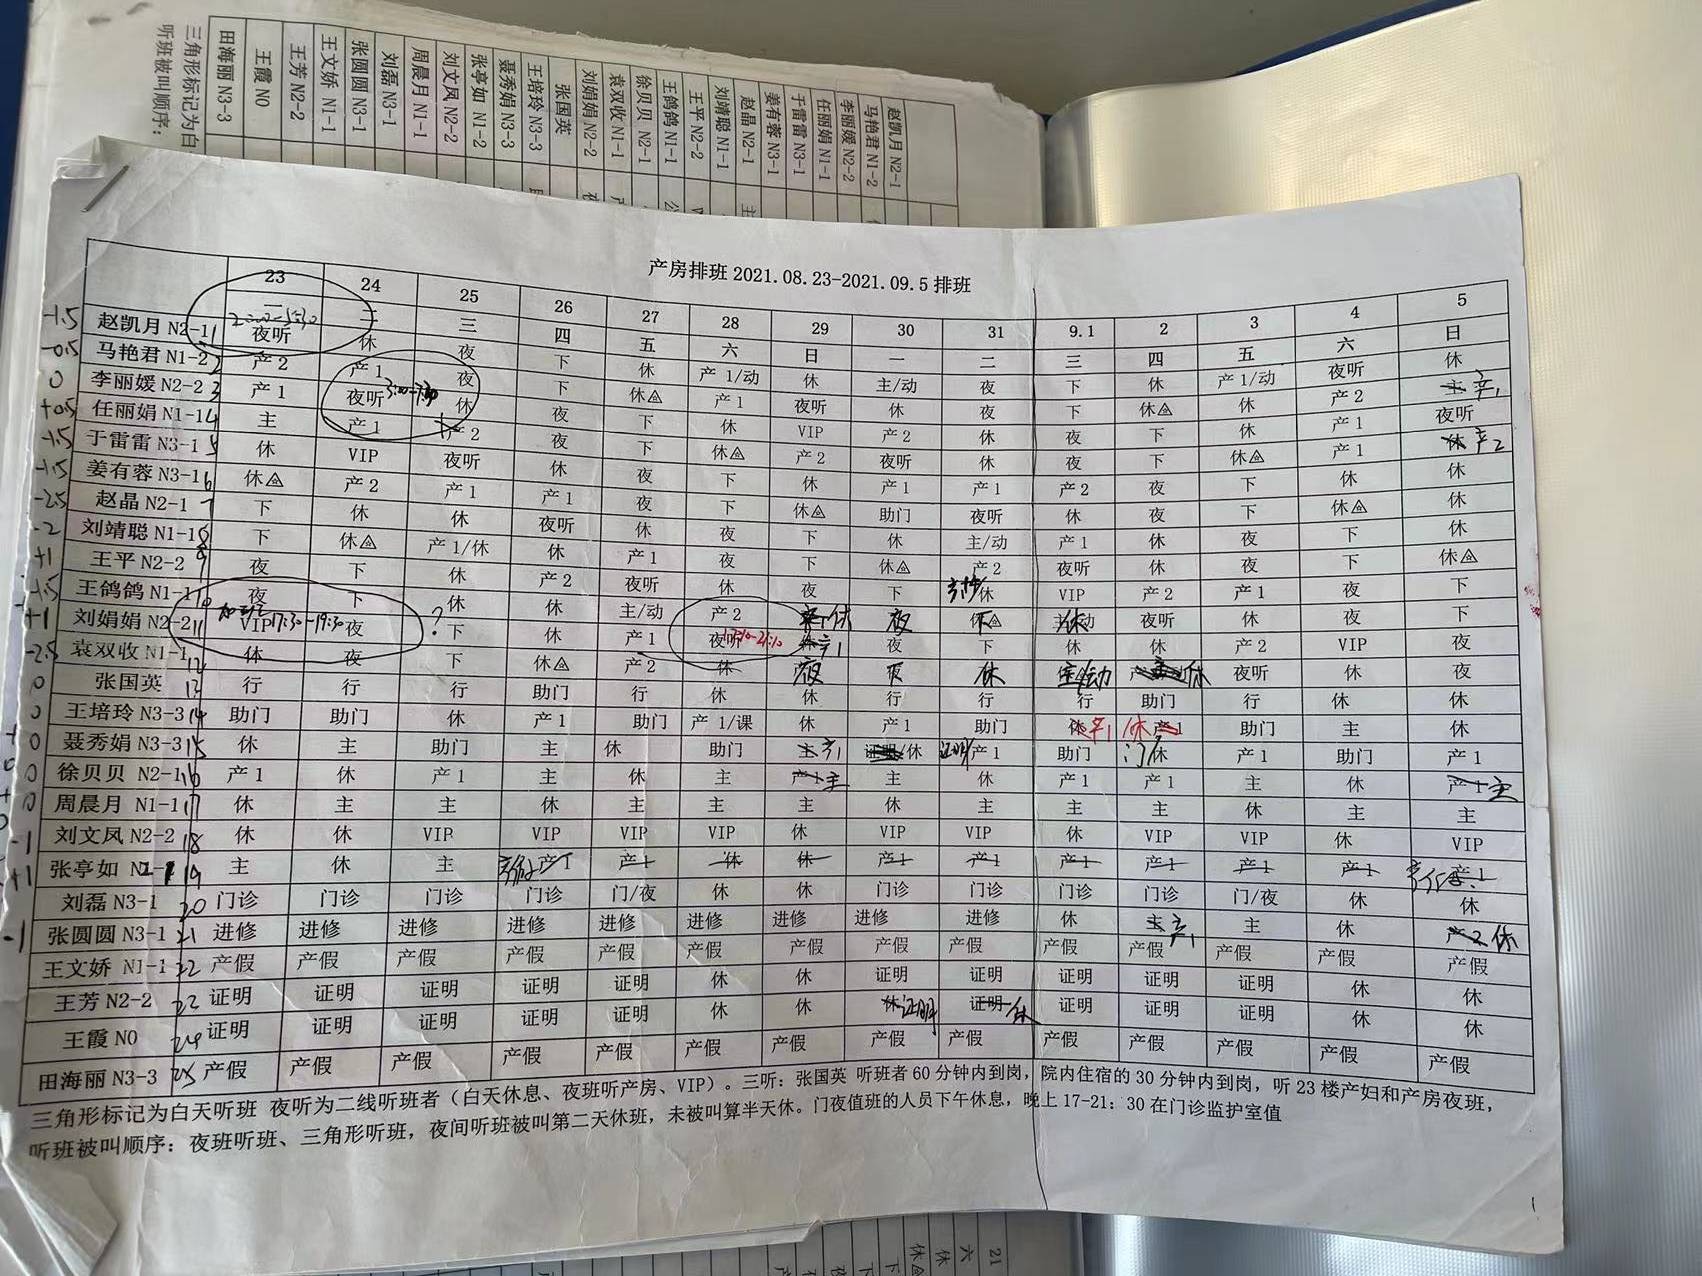 田海丽 N3-3
王霞 N0
王芳 N2-2
王文娇 N1-1
张圆圆 N3-1
刘磊 N3-1
周晨月 N1-1
刘文凤 N2-2
张亭如 N1-2
聂秀娟 N3-3
王培玲 N3-3
张国英
刘娟娟 N2-2
袁双收 N1-1
徐贝贝 N2-1
王鸽鸽 N1-1
王平 N2-2
刘靖聪 N1-1
赵晶 N2-1
姜有蓉 N3-1
于雷雷 N3-1
任丽娟 N1-1
李丽媛 N2-2
马艳君 N1-2
赵凯月 N2-1
三角形标记为白
听班被叫顺序：
产房排班 2021.08.23-2021.09.5 排班
23 24 25 26 27 28 29 30 31 9.1 2 3 4 5
一 二 三 四 五 六 日 一 二 三 四 五 六 日
-1.5 赵凯月 N2-1 1 夜听 休 夜 下 休 产1/动 休 主/动 夜 下 休 产1/动 夜听 休
-0.5 马艳君 N1-2 2 产2 产1 夜 下 休 产1 夜听 休 夜 下 休 休 产2 主 产1
0 李丽媛 N2-2 3 产1 夜听 3:00-7:30 休 夜 下 休 VIP 产2 休 夜 下 休 产1 夜听
+0.5 任丽娟 N1-1 4 主 产1 产2 夜 下 休 产2 夜听 休 夜 下 休 产1 休 产2
-1.5 于雷雷 N3-1 5 休 VIP 夜听 休 夜 下 休 产1 产1 产2 夜 下 休 休
-1.5 姜有蓉 N3-1 6 休 产2 产1 产1 夜 下 休 助门 夜听 休 夜 下 休 休
-2.5 赵晶 N2-1 7 下 休 休 夜听 休 夜 下 休 主/动 产1 休 夜 下 休
-2 刘靖聪 N1-1 8 下 休 产1/休 休 产1 夜 下 休 产2 夜听 休 夜 下 休
+1 王平 N2-2 9 夜 下 休 产2 夜听 休 夜 下 休 VIP 产2 产1 夜 下
-1.5 王鸽鸽 N1-1 10 夜 下 休 休 主/动 产2 休 夜 下 休 夜听 休 夜 下
+1 刘娟娟 N2-2 11 VIP 17:30-19:30 夜 ? 下 休 产1 夜听 休 产1 夜 下 休 休 产2 VIP 夜
-2.5 袁双收 N1-1 12 休 夜 下 休 产2 休 夜 下 休 休 夜听 休 夜
0 张国英 13 行 行 行 助门 行 休 休 行 行 行 助门 行 休 休
0 王培玲 N3-3 14 助门 助门 休 产1 助门 产1/课 休 产1 助门 休 产1 休 产1 助门 主 休
0 聂秀娟 N3-3 15 休 主 助门 主 休 助门 主 产1 证明/休 证明 产1 助门 休 产1 助门 产1
0 徐贝贝 N2-1 16 产1 休 产1 主 休 主 产1 主 主 休 产1 产1 主 休 产1 主
0 周晨月 N1-1 17 休 主 主 休 主 主 主 休 主 主 主 休 主 主
-1 刘文凤 N2-2 18 休 休 VIP VIP VIP VIP 休 VIP VIP 休 VIP VIP 休 VIP
+1 张亭如 19 主 休 主 产假 产1 产1 休 休 产1 产1 产1 产1 产1 产1 产1
刘磊 N3-1 20 门诊 门诊 门诊 门诊 门/夜 休 休 门诊 门诊 门诊 门诊 门/夜 休 休
-1 张圆圆 N3-1 21 进修 进修 进修 进修 进修 进修 进修 进修 进修 休 主 产1 主 休 产2 休
王文娇 N1-1 22 产假 产假 产假 产假 产假 产假 产假 产假 产假 产假 产假 产假 产假 产假
王芳 N2-2 证明 证明 证明 证明 证明 休 休 证明 证明 证明 证明 证明 休 休
王霞 N0 24 证明 证明 证明 证明 证明 休 休 休 证明 证明 休 证明 证明 证明 休 休
田海丽 N3-3 25 产假 产假 产假 产假 产假 产假 产假 产假 产假 产假 产假 产假 产假 产假
三角形标记为白天听班 夜听为二线听班者（白天休息、夜班听产房、VIP）。三听：张国英 听班者60分钟内到岗，院内住宿的30分钟内到岗，听23楼产妇和产房夜班，
听班被叫顺序：夜班听班、三角形听班，夜间听班被叫第二天休班，未被叫算半天休。门夜值班的人员下午休息，晚上17-21：30在门诊监护室值
1